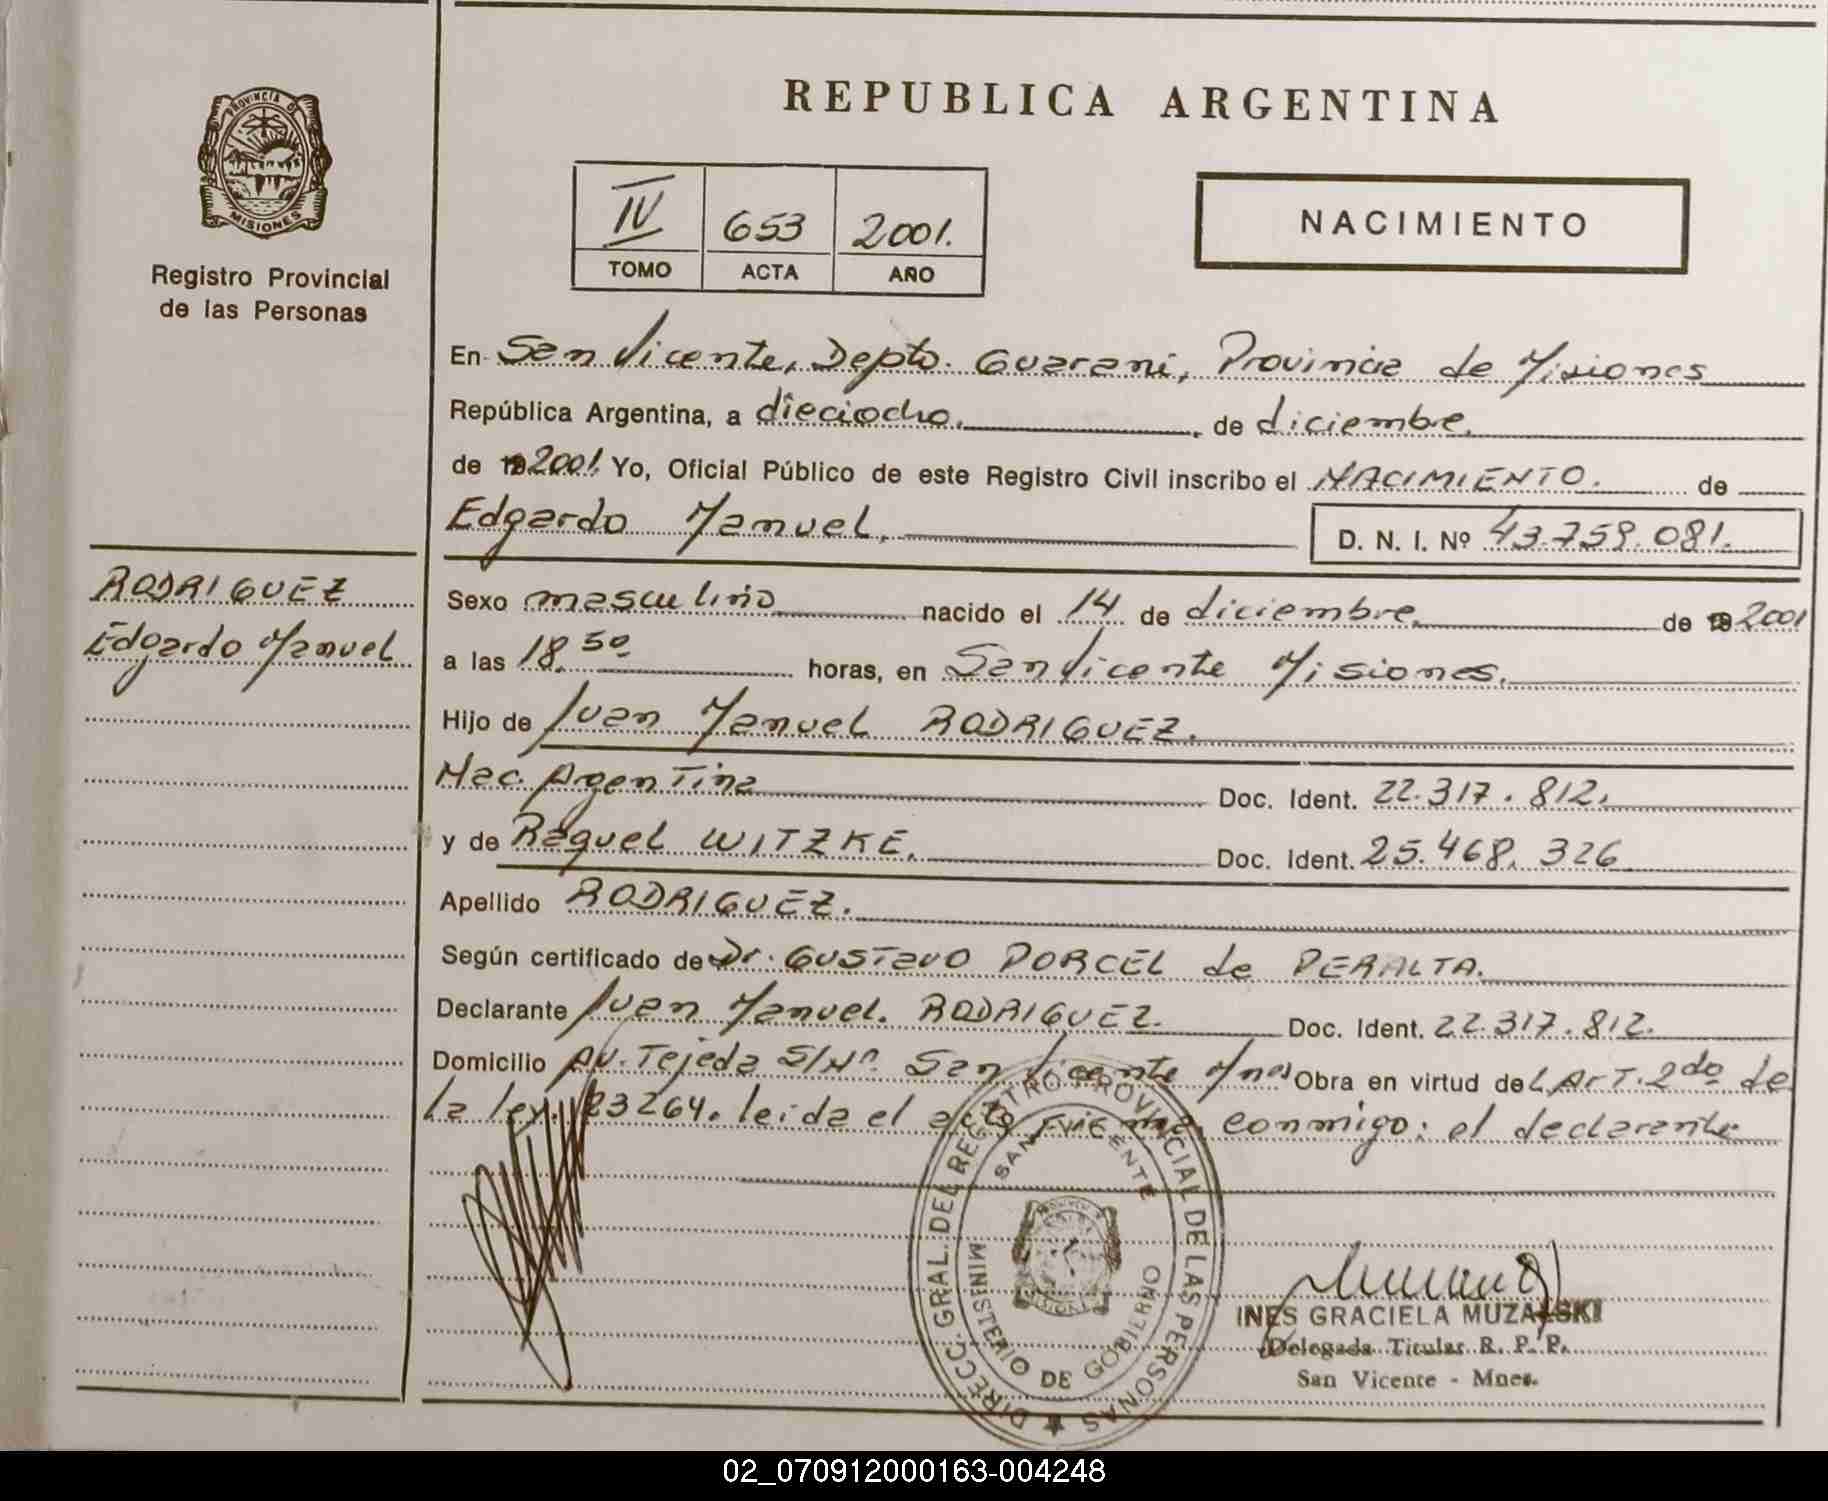 PROVINCIA DE
MISIONES
Registro Provincial
de las Personas
RODRIGUEZ
Edgardo Manuel
REPUBLICA ARGENTINA
IV 653 2001.
TOMO ACTA AÑO
NACIMIENTO
En San Vicente, Depto. Guarani, Provincia de Misiones
República Argentina, a dieciocho, de diciembre,
de 19 2001, Yo, Oficial Público de este Registro Civil inscribo el NACIMIENTO. de
Edgardo Manuel, D. N. I. Nº 43.759.081.
Sexo masculino nacido el 14 de diciembre, de 19 2001
a las 18,50 horas, en San Vicente Misiones,
Hijo de Juan Manuel RODRIGUEZ.
Nac. Argentina Doc. Ident. 22.317.812,
y de Raquel WITZKE, Doc. Ident. 25.468.326
Apellido RODRIGUEZ.
Según certificado de Dr. GUSTAVO PORCEL de PERALTA.
Declarante Juan Manuel. RODRIGUEZ. Doc. Ident. 22.317.812.
Domicilio AV. Tejeda S/Nº. San Vicente Mnes Obra en virtud del ArT. 2do de
la ley. 23264. leida el acto, firma conmigo: el declarante
DIRECC. GRAL. DEL REGISTRO PROVINCIAL DE LAS PERSONAS
SAN VICENTE
MINISTERIO DE GOBIERNO
INES GRACIELA MUZALSKI
Delegada Titular R. P. P.
San Vicente - Mnes.
02_070912000163-004248